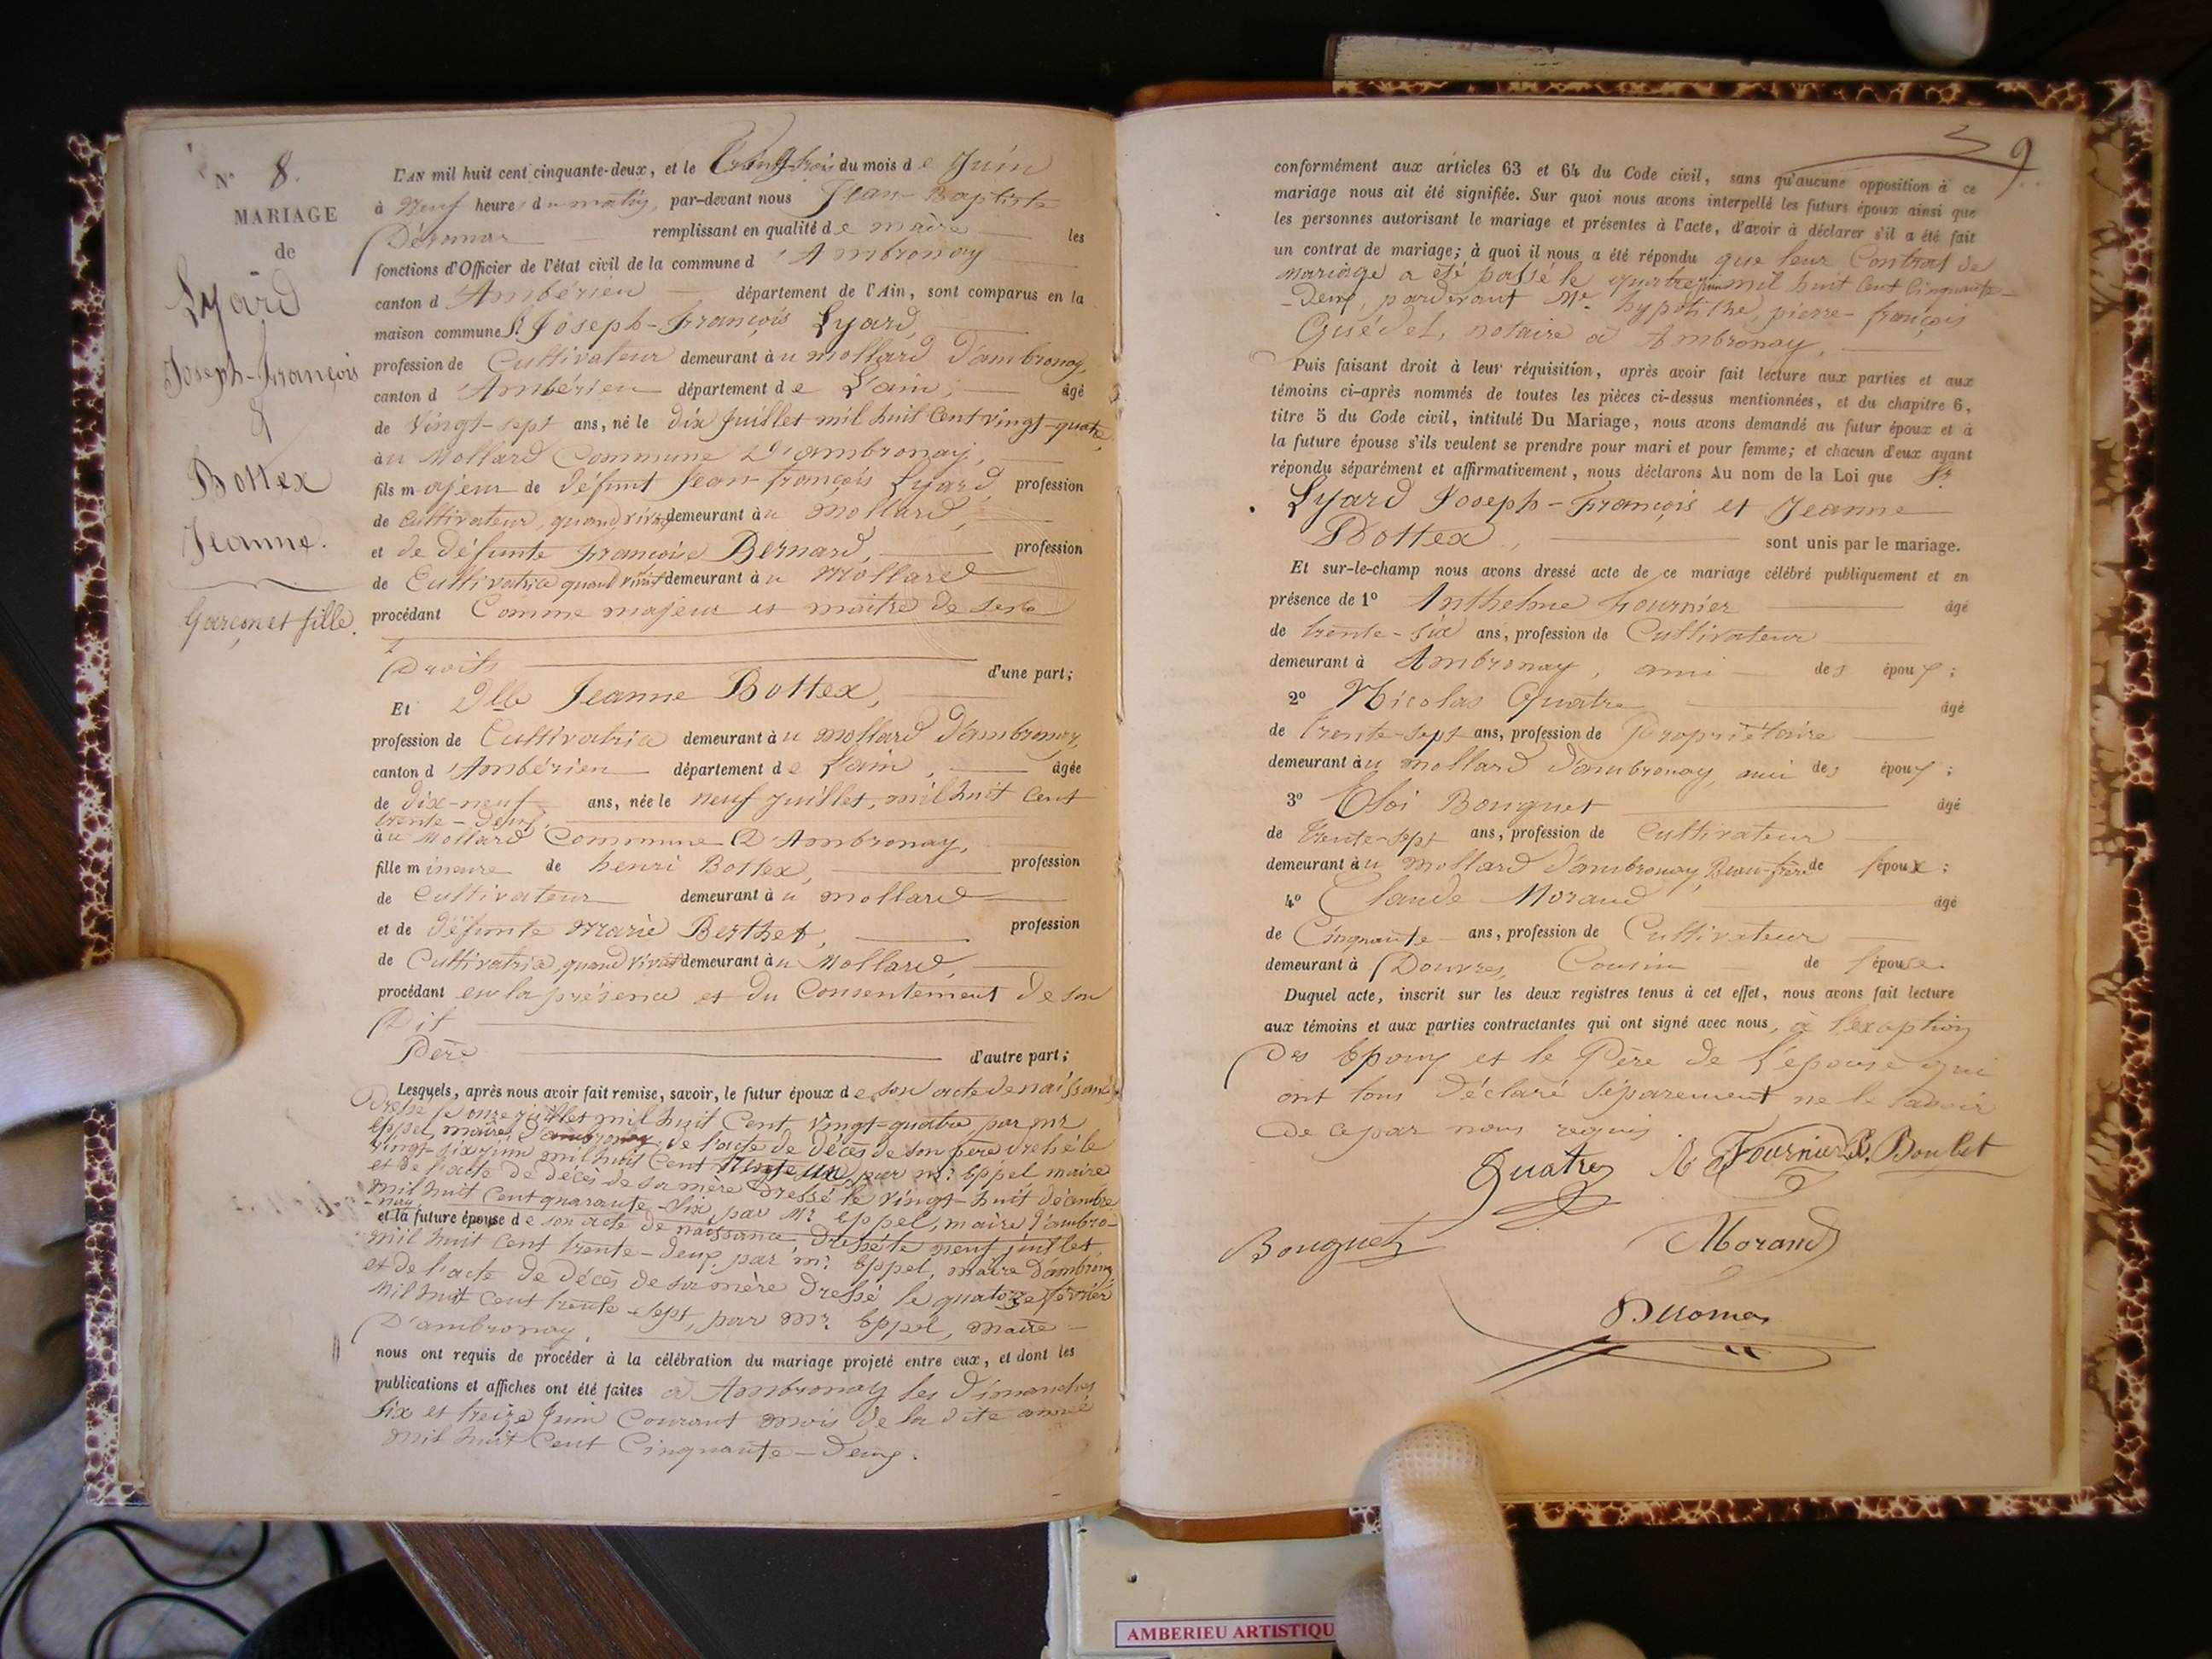 N° 8.
MARIAGE
de
Lyard
Joseph-François
&
Bottex
Jeanne.
Garçon et fille.
L'AN mil huit cent cinquante-deux, et le vingt-trois du mois de Juin
à neuf heures du matin, par-devant nous Jean-Baptiste
remplissant en qualité de maire les
fonctions d'Officier de l'état civil de la commune d'Ambronay
canton d'Ambérieu département de l'Ain, sont comparus en la
maison commune Sr Joseph-François Lyard,
profession de Cultivateur demeurant au mollard d'ambronay,
canton d'Ambérieu département de L'ain, âgé
de vingt-sept ans, né le dix Juillet mil huit Cent vingt-quatre,
au Mollard Commune D'ambronay,
fils majeur de défunt Jean-françois Lyard, profession
de Cultivateur, quand vivait demeurant au mollard,
et de défunte Françoise Bernard, profession
de Cultivatrice quand vivait demeurant au Mollard
procédant Comme majeur et maitre de ses
Droits d'une part;
Et Dlle Jeanne Bottex,
profession de Cultivatrice demeurant au mollard d'ambronay,
canton d'Ambérieu département de L'ain, âgée
de dix-neuf ans, née le neuf Juillet, mil huit Cent
trente-deux,
au Mollard Commune D'Ambronay,
fille mineure de henri Bottex, profession
de Cultivateur demeurant au mollard
et de défunte Marie Berthet, profession
de Cultivatrice, quand vivait demeurant au Mollard,
procédant en la présence et du Consentement de son
Dit
Père d'autre part;
Lesquels, après nous avoir fait remise, savoir, le futur époux de son acte de naissance
Dressé le onze juillet mil huit Cent vingt-quatre par mr
Eppel, maire d'ambronay, de l'acte de décès de son père dressé le
vingt-six juin mil huit Cent trente un par mr Eppel maire
et de l'acte de décès de sa mère Dressé le vingt-huit décembre
mil huit Cent quarante-six, par Mr Eppel, maire d'ambro-
nay
et la future épouse de son acte de naissance Dressé le neuf juillet
mil huit Cent trente-deux par mr Eppel, maire d'ambronay
et de l'acte de décès de sa mère Dressé le quatorze février
mil huit Cent trente-sept, par Mr Eppel, Maire
D'ambronay,
nous ont requis de procéder à la célébration du mariage projeté entre eux, et dont les
publications et affiches ont été faites à Ambronay les Dimanches
six et treize Juin Courant mois de la dite année
mil huit Cent Cinquante-Deux.
9
conformément aux articles 63 et 64 du Code civil, sans qu'aucune opposition à ce
mariage nous ait été signifiée. Sur quoi nous avons interpellé les futurs époux ainsi que
les personnes autorisant le mariage et présentes à l'acte, d'avoir à déclarer s'il a été fait
un contrat de mariage; à quoi il nous a été répondu que leur Contrat de
mariage a été passé le quatre juin mil huit Cent Cinquante-
-Deux, pardevant Me hypolithe, pierre-françois
Guédel, notaire à Ambronay,
Puis faisant droit à leur réquisition, après avoir fait lecture aux parties et aux
témoins ci-après nommés de toutes les pièces ci-dessus mentionnées, et du chapitre 6,
titre 5 du Code civil, intitulé Du Mariage, nous avons demandé au futur époux et à
la future épouse s'ils veulent se prendre pour mari et pour femme; et chacun d'eux ayant
répondu séparément et affirmativement, nous déclarons Au nom de la Loi que Sr
Lyard Joseph-François et Jeanne
Bottex, sont unis par le mariage.
Et sur-le-champ nous avons dressé acte de ce mariage célébré publiquement et en
présence de 1° Anthelme Fournier âgé
de trente-six ans, profession de Cultivateur
demeurant à Ambronay, ami des époux;
2° Nicolas Quatre âgé
de trente-sept ans, profession de Propriétaire
demeurant au mollard d'ambronay ami des époux;
3° Eloi Bouguet âgé
de trente-sept ans, profession de Cultivateur
demeurant au mollard d'ambronay, Beau-frère de l'époux;
4° Claude Morand âgé
de Cinquante ans, profession de Cultivateur
demeurant à Douvres, Cousin de l'épouse.
Duquel acte, inscrit sur les deux registres tenus à cet effet, nous avons fait lecture
aux témoins et aux parties contractantes qui ont signé avec nous, à l'exception
Des Epoux et le Père de l'épouse qui
ont tous déclaré séparement ne le savoir
de ce par nous requis.
Quatre A Fournier B. Boulet
Bouguet Morand
AMBERIEU ARTISTIQU